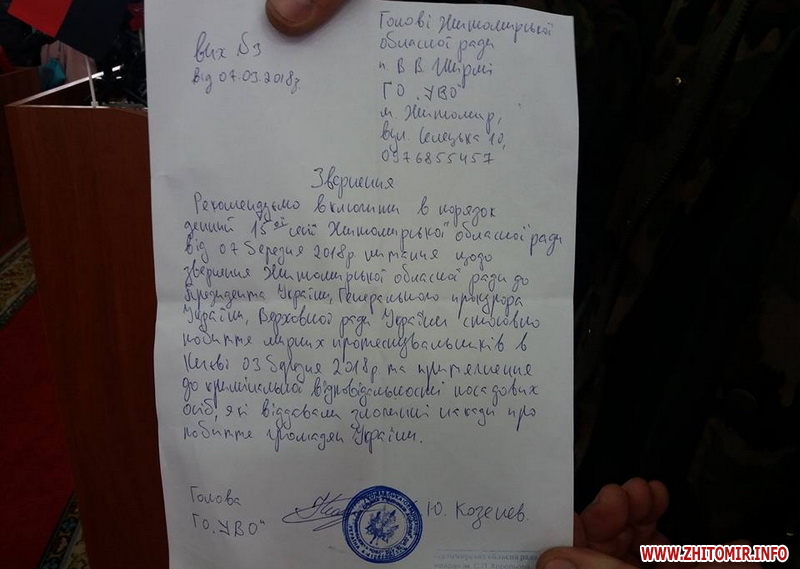 вих №3
від 07.03.2018р.
Голові Житомирської
обласної ради
п. В В Ширмі
ГО "УВО"
м. Житомир,
вул. Селецька 10,
0976855457
Звернення
Рекомендуємо включити в порядок
денний 15ої сесії Житомирської обласної ради
від 07 березня 2018р питання щодо
звернення Житомирської обласної ради до
Президента України, Генерального прокурора
України, Верховної ради України стосовно
побиття мирних протестувальників в
Києві 03 березня 2018р та притягнення
до кримінальної відповідальності посадових
осіб, які віддавали злочинні накази про
побиття громадян України.
Голова
ГО "УВО"
Ю. Козенев.
Житомирська обласна рада
WWW.ZHITOMIR.INFO